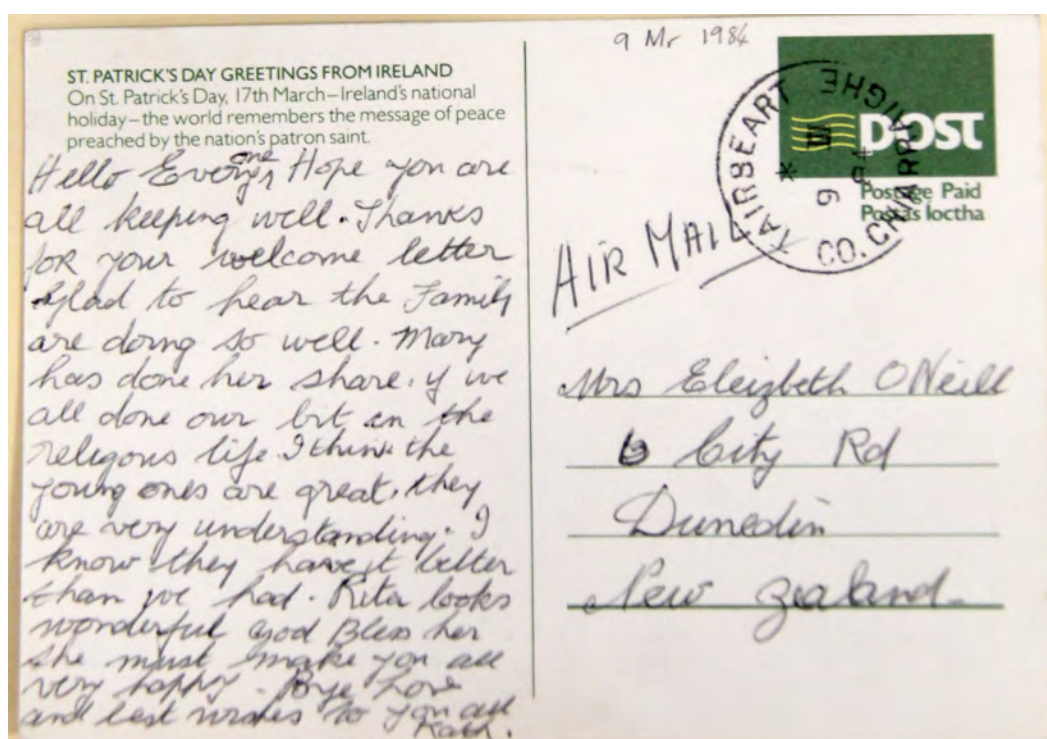 ST. PATRICK'S DAY GREETINGS FROM IRELAND
On St. Patrick's Day, 17th March–Ireland's national
holiday–the world remembers the message of peace
preached by the nation's patron saint.
Hello Everyone Hope you are
all keeping well. Thanks
for your welcome letter
Glad to hear the Family
are doing so well. Mary
has done her share. if we
all done our bit in the
religous life. I think the
young ones are great, they
are very understanding. I
know they have it better
than we had. Rita looks
wonderful God Bless her
she must make you all
very happy - Bye Love
and best wishes to you all
Kath.
9 Mr 1984
POST
Postage Paid
Postas íoctha
CO. CHIARRAIGHE
9 III 84
AIR MAIL
Mrs Eleizbeth O Neill
City Rd
Dunedin
New Zealand